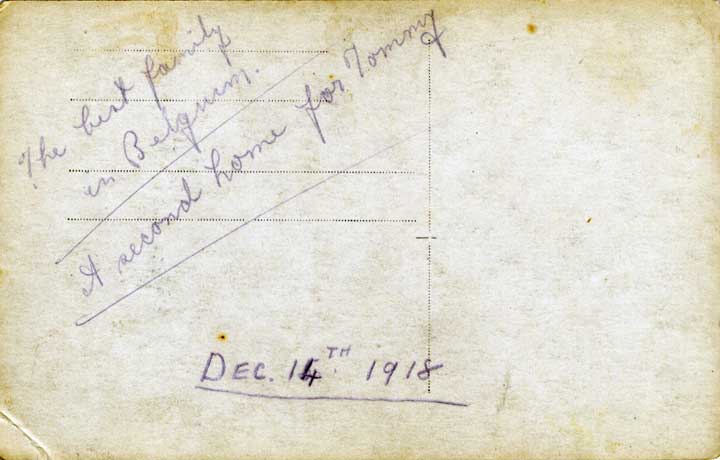 The best family
in Belguim.
A second home for Tommy
DEC. 14TH 1918